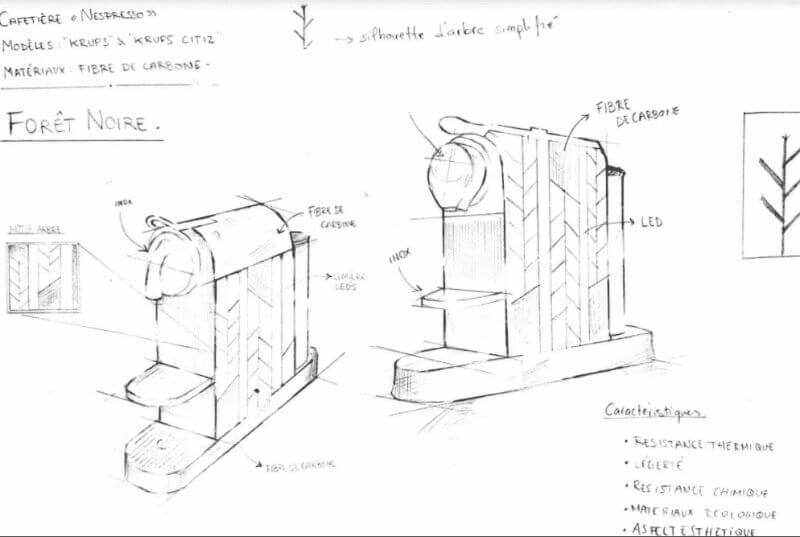 CAFETIÈRE « NESPRESSO »
MODÈLES : "KRUPS" & "KRUPS CITIZ"
MATÉRIAUX : FIBRE DE CARBONE -
FORÊT NOIRE .
→ silhouette d'arbre simplifié
MOTIF ARBRE
INOX
FIBRE DE
CARBONE
LUMIÈRE
LED'S
FIBRE DE CARBONE
INOX
FIBRE
DE CARBONE
LED
Caractéristiques
• RESISTANCE THERMIQUE
• LÉGERTÉ
• RESISTANCE CHIMIQUE
• MATERIAUX ECOLOGIQUE
• ASPECT ESTHÉTIQUE